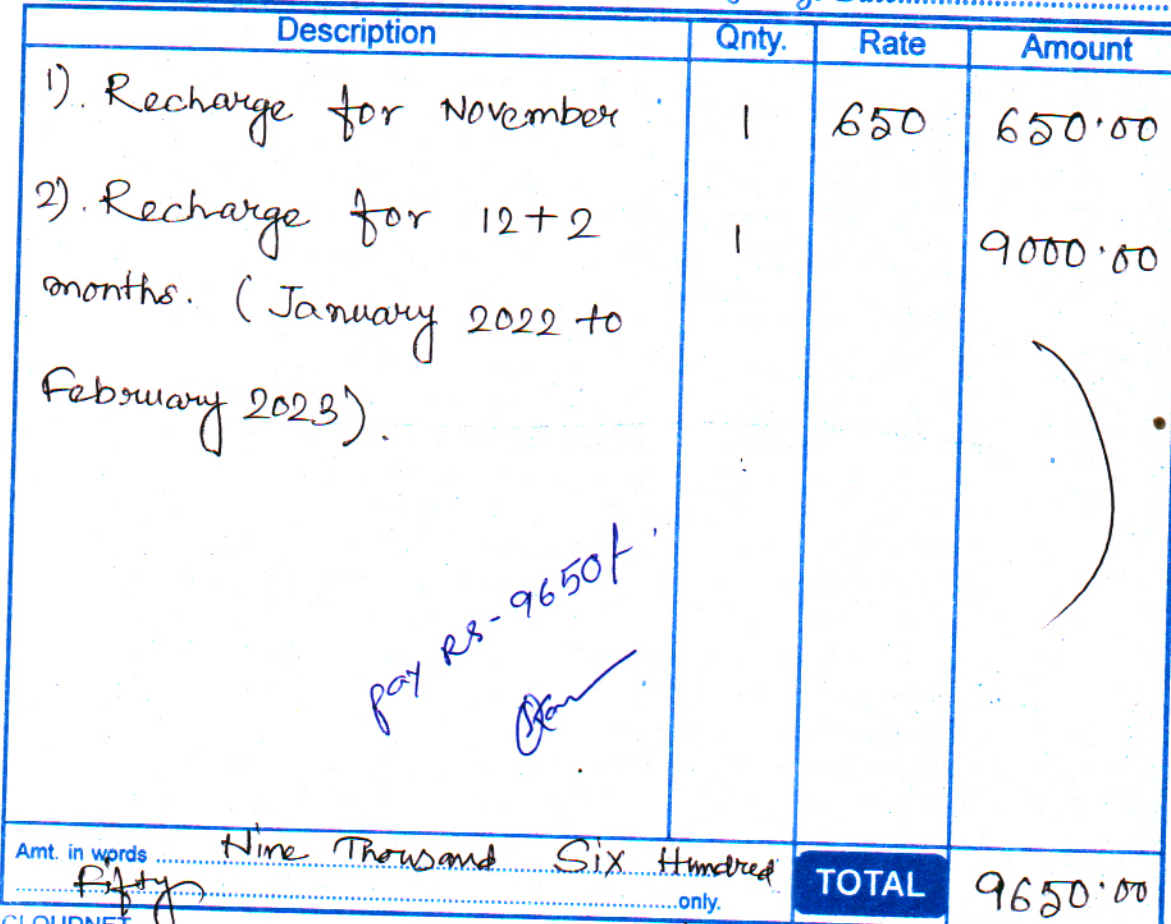 Description Qnty. Rate Amount
1). Recharge for November 1 650 650.00
2). Recharge for 12+2 1 9000.00
months. (January 2022 to
February 2023).
pay Rs - 9650/-
Amt. in words Nine Thousand Six Hundred
Fifty only.
TOTAL 9650.00
CLOUDNET